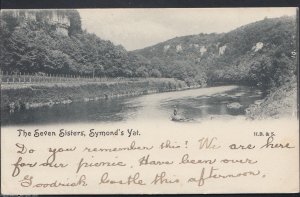 The Seven Sisters, Symond's Yat.
H.B. & S.
Do you remember this? We are here
for our picnic. Have been over
Goodrich Castle this afternoon.